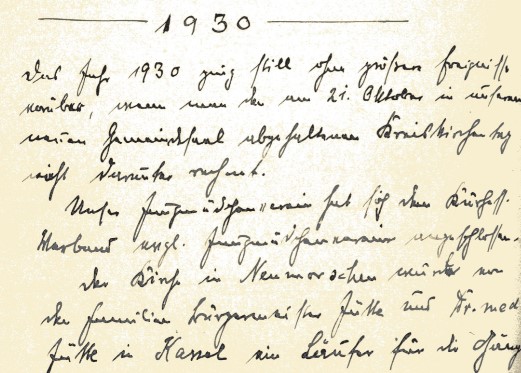 1930
Das Jahr 1930 ging still ohne größere Ereignisse
vorüber, wenn man den am 21. Oktober in unserem
neuen Gemeindesaal abgehaltenen Kreiskirchentag
nicht darunter rechnet.
Unser Jungmädchenverein hat sich dem Kurhess.
Verband evgl. Jungmädchenvereine angeschlossen.
Der Kirche in Neumorschen wurde von
den Familien Bürgermeister Jütte und Dr. med.
Jütte in Kassel ein Läufer für die